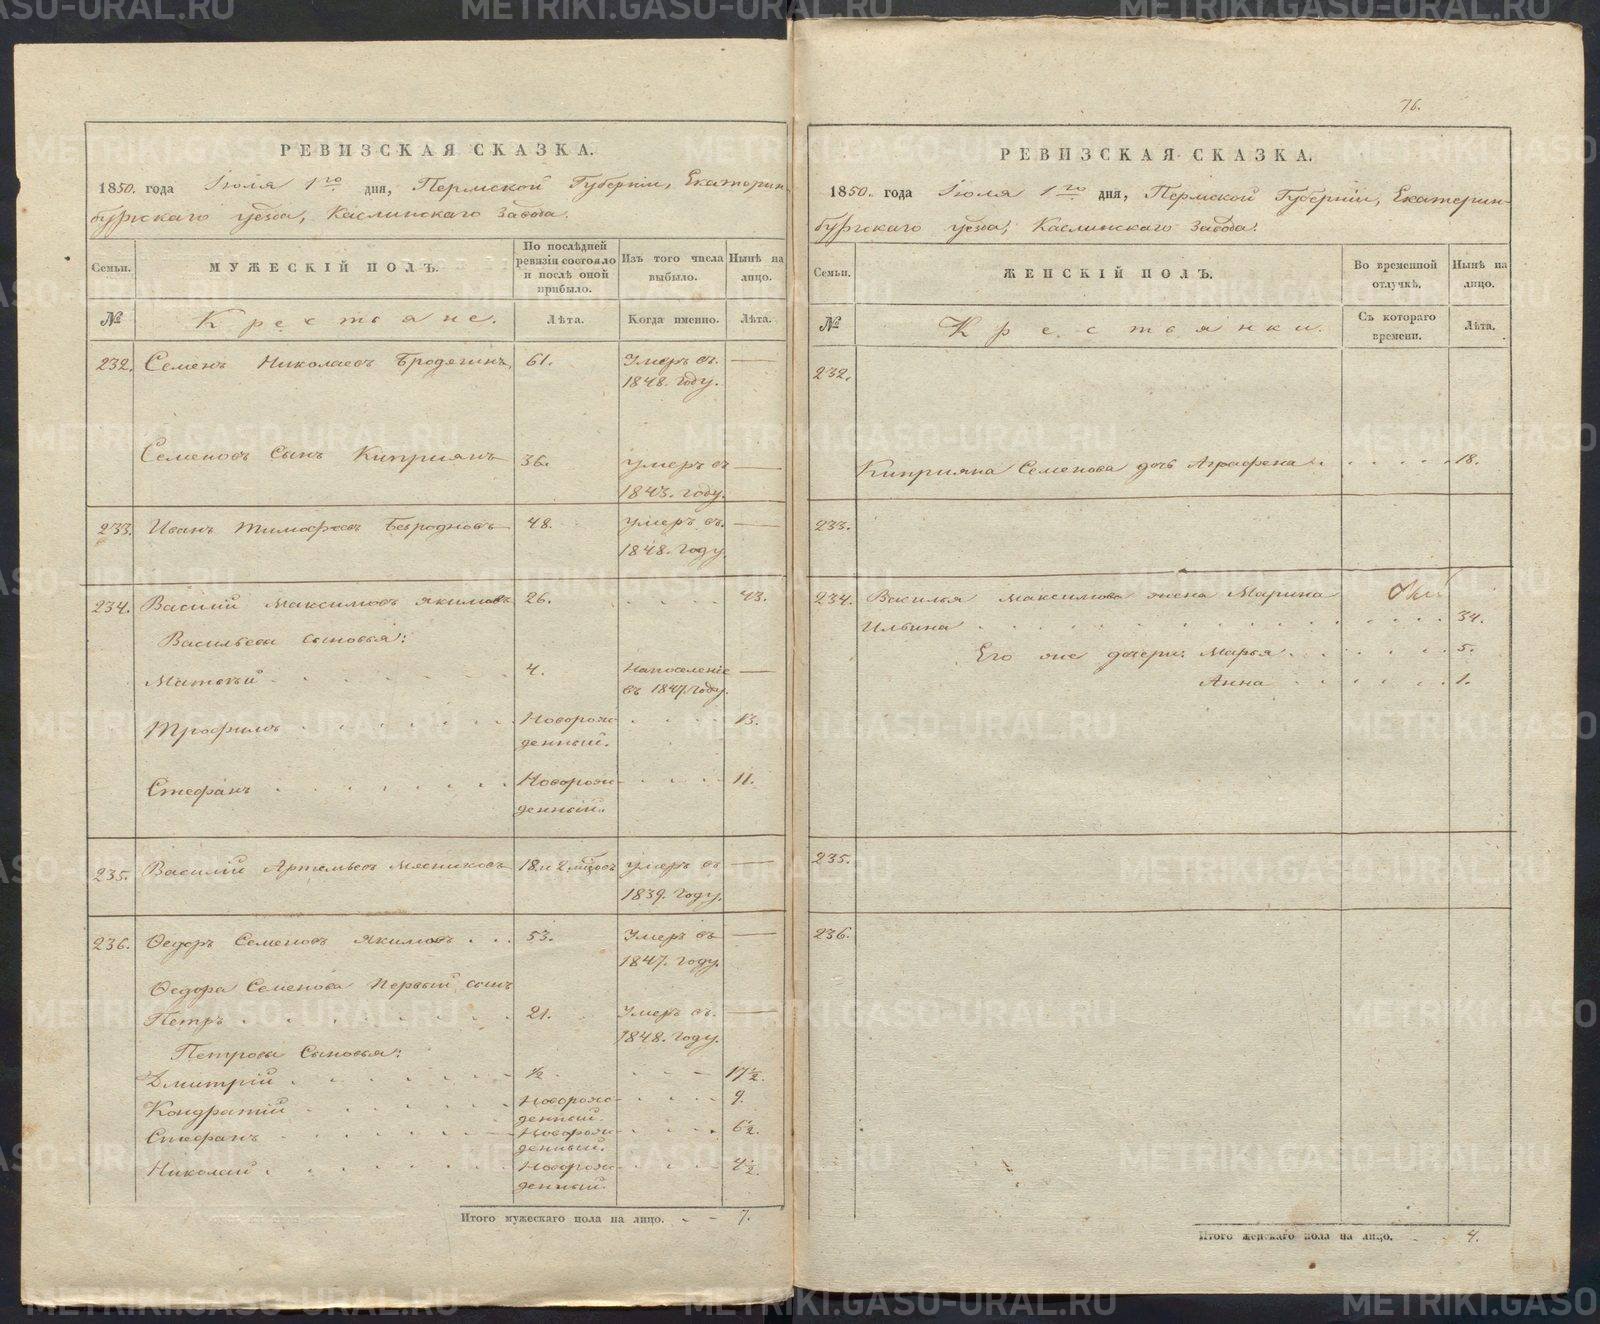 РЕВИЗСКАЯ СКАЗКА.
1850. года Іюля 1го дня, Пермской Губерніи, Екатерин-
бургскаго уезда, Каслинскаго Завода.
Семьи.
МУЖЕСКІЙ ПОЛЪ.
По послѣдней ревизіи состояло и послѣ оной прибыло.
Изъ того числа выбыло.
Нынѣ на лицо.
№ Крестьяне. Лѣта. Когда именно. Лѣта.
232. Семенъ Николаевъ Бродягинъ 61. Умеръ въ
1848. году.
Семеновъ Сынъ Кипріянъ 36. умеръ въ
1843. году.
233. Иванъ Тимофеевъ Безродновъ 48. умеръ въ.
1848. Году
234. Василій Максимовъ Якимовъ 26. 43.
Васильева сыновья:
Матвѣй 4. На поселеніе
въ 1847. году.
Трофимъ Новорож- 13.
денный.
Стефанъ Новорож- 11.
денный.
235. Василій Артемьевъ Мясниковъ 18. и 2 мѣсяцовъ умеръ въ
1839. Году.
236. Ѳедоръ Семеновъ Якимовъ 53. Умеръ въ
1847. Году.
Ѳедора Семенова Первый сынъ
Петръ 21. Умеръ въ.
1848. Году.
Петровы Сыновья:
Дмитрій ½. 17½.
Кондратій Новорож- 9.
денный.
Стефанъ Новорож- 6½.
денный.
Николай Новорож- 4½.
денный.
Итого мужескаго пола на лицо. 7.
76.
РЕВИЗСКАЯ СКАЗКА.
1850. года Іюля 1го дня, Пермской Губерніи, Екатерин-
бургскаго уезда, Каслинскаго Завода.
Семьи.
ЖЕНСКІЙ ПОЛЪ.
Во временной отлучкѣ.
Нынѣ на лицо.
№ Крестьянки. Съ котораго времени. Лѣта.
232.
Кипріяна Семенова дочь Аграфена 18.
233.
234. Василья Максимова жена Марина
Ильина 34.
Его же дочери: Марья 5.
Анна 1.
235.
236.
Итого женскаго пола на лицо. 4.
METRIKI.GASO-URAL.RU